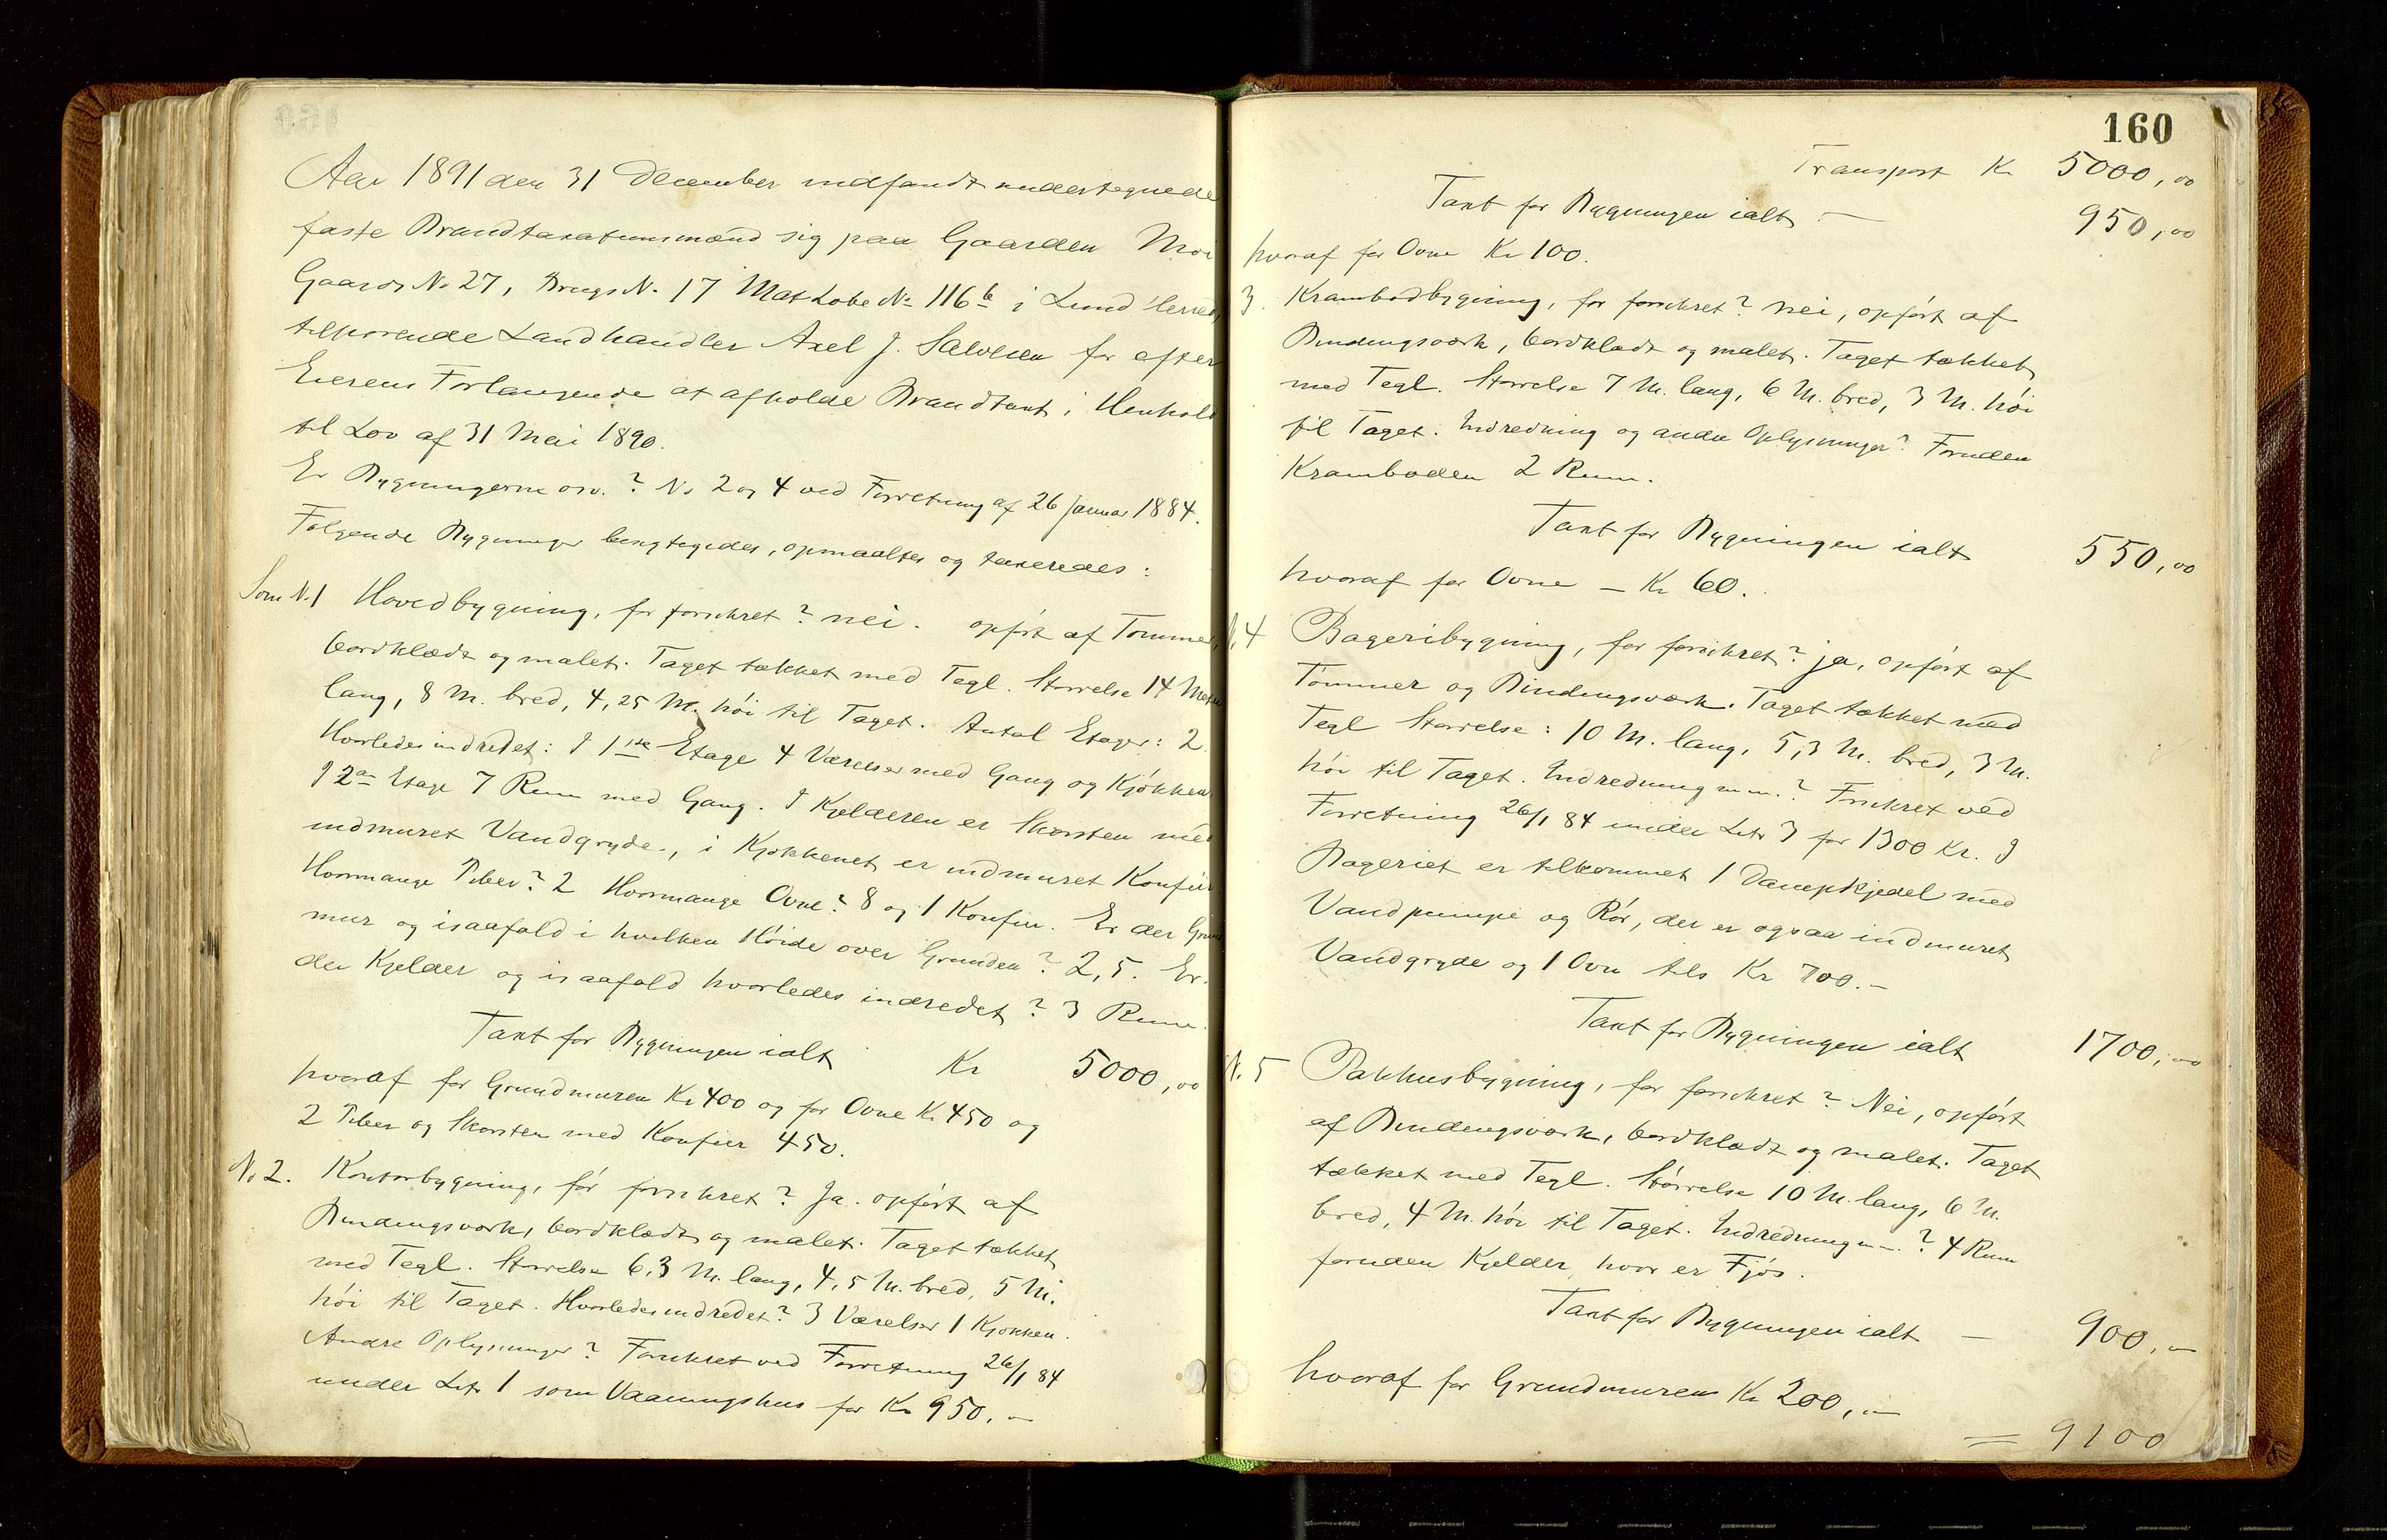 Aar 1891 den 31 December indfandt undertegnede
faste Brandtaxationsmænd sig paa Gaarden Moi
Gaards No 27, Brugs N. 17 Mat Løbe No 116 b i Lund
tilhørende Landhandler Axel J. Salvesen for efter
Eierens Forlangende at afholde Brandtaxt i Henhold
til Lov af 31 Mai 1890.
Er Bygningerne osv.? No 2 og 4 ved Forretning af 26 Januar 1884.
Følgende Bygninger besigtigedes, opmaaltes og taxeredes:
Som N. 1 Hovedbygning, før forsikret? nei. opført af Tømmer,
bordklædt og malet. Taget tækket med Tegl. Størrelse 14 Meter
lang, 8 M. bred, 4,25 M. høi til Taget. Antal Etager: 2.
Hvorledes indredet: I 1ste Etage 4 Værelser med Gang og Kjøkken.
I 2den Etage 7 Rum med Gang. I Kjelderen er Skorsten med
indmuret Vandgryde, i Kjøkkenet er indmuret Komfür
Hvormange Piber? 2 Hvormange Ovne? 8 og 1 Komfur. Er der Grund
mur og isaafald i hvilken Høide over Grunden? 2,5. Er
der Kjelder og isaafald hvorledes indredet? 3 Rum.
Taxt for Bygningen ialt Kr 5000,00
hvoraf for Grundmuren Kr 400 og for Ovne Kr 450 og
2 Piber og Skorsten med Komfur 450.
No 2. Kontorbygning, før forsikret? Ja. opført af
Bindingsværk, bordklædt og malet. Taget tækket
med Tegl. Størrelse 6,3 M. lang, 4,5 M. bred, 5 M.
høi til Taget. Hvorledes indredet? 3 Værelser 1 Kjøkken.
Andre Oplysninger? Forsikret ved Forretning 26/1 84
under Litr 1 som Vaaningshus for Kr 950.-
160
Transport Kr 5000,00
Taxt for Bygningen ialt - 950,00
hvoraf for Ovne Kr 100.
3. Krambodbygning, før forsikret? nei, opført af
Bindingsværk, bordklædt og malet. Taget tækket
med Tegl. Størrelse 7 M. lang, 6 M. bred, 3 M. høi
til Taget. Indredning og andre Oplysninger? Foruden
Kramboden 2 Rum.
Taxt for Bygningen ialt 550,00
hvoraf for Ovne - Kr 60.
N. 4 Bageribygning, før forsikret? ja, opført af
Tømmer og Bindingsværk. Taget tækket med
Tegl Størrelse: 10 M. lang, 5,3 M. bred, 3 M.
høi til Taget. Indredning m.m.? Forsikret ved
Forretning 26/1 84 under Litr 3 for 1300 Kr. I
Bageriet er tilkommet 1 Dampkjedel med
Vandpumpe og Rør, der er ogsaa indmuret
Vandgryde og 1 Ovn tils Kr 700.-
Taxt for Bygningen ialt 1700,00
N. 5 Pakhusbygning, før forsikret? Nei, opført
af Bindingsværk, bordklædt og malet. Taget
tækket med Tegl. Størrelse 10 M. lang, 6 M.
bred, 4 M. høi til Taget. Indredning m.m.? 4 Rum
foruden Kjelder, hvor er Fjøs.
Taxt for Bygningen ialt - 900,-
hvoraf for Grundmuren Kr 200,-
= 9100